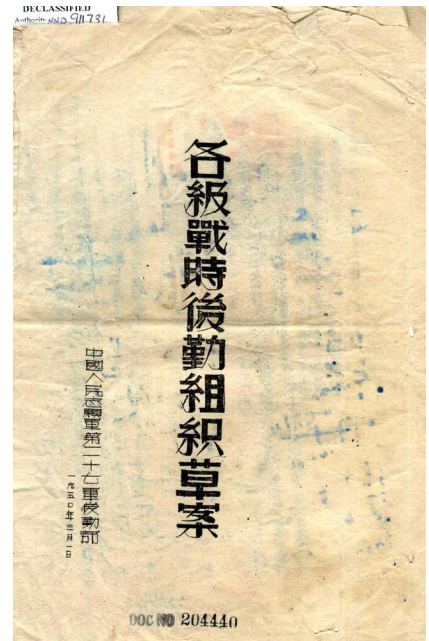 DECLASSIFIED
Authority NND 911731
各級戰時後勤組织草案
中國人民志願軍第二十七軍後勤部
一九五〇年三月一日
DOC NO 204440